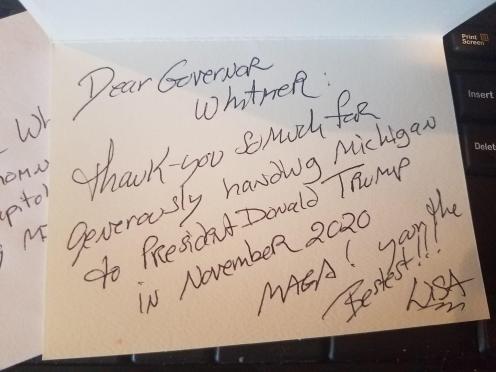 Dear Governor
Whitmer:
thank-you so much for
generously handing Michigan
to President Donald Trump
in November 2020
MAGA! your the
Bestest!!!
LISA
Print
Screen
Insert
Delete